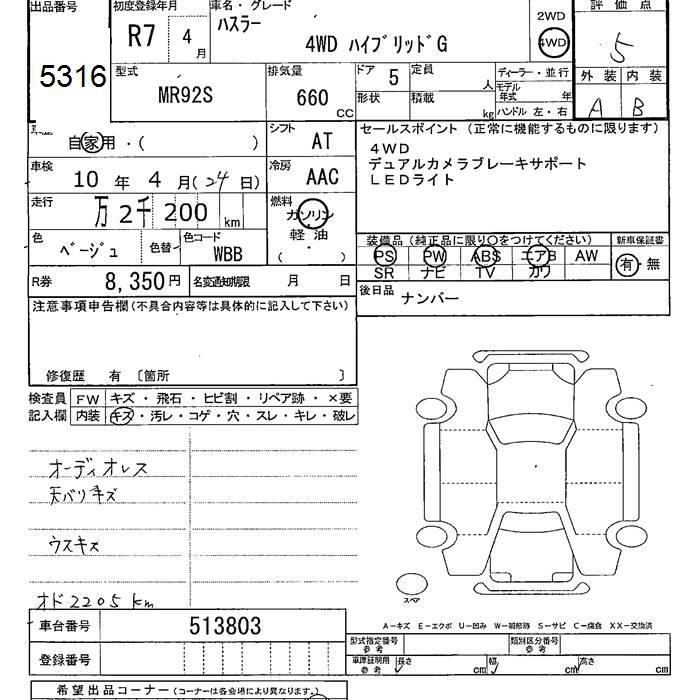 出品番号
5316
初度登録年月
R7 4月
車名・グレード
ハスラー
4WD ハイブリッドG
2WD
4WD
評価点
5
外装 内装
A B
型式
MR92S
排気量
660 CC
ドア 5
定員 人
形状
積載 kg
ディーラー・並行
モデル年式 年
ハンドル 左・右
車歴
自家用・( )
シフト
AT
車検
10年 4月(24日)
冷房
AAC
走行
万 2千 200 km
燃料
ガソリン
軽・油
( )
色
ベージュ
色替
色コード
WBB
R券
8,350円
名変通知期限 月 日
セールスポイント(正常に機能するものに限ります)
4WD
デュアルカメラブレーキサポート
LEDライト
装備品(純正品に限り○をつけてください)
PS PW ABS エアB AW
SR ナビ TV カワ
新車保証書
有・無
後日品
ナンバー
注意事項申告欄(不具合内容等は具体的に記入して下さい)
修復歴 有〔箇所 〕
検査員記入欄
FW キズ・飛石・ヒビ割・リペア跡・×要
内装 キズ・汚レ・コゲ・穴・スレ・キレ・破レ
オーディオレス
天バリキズ
ウスキズ
オド2205km
スペア
A−キズ E−エクボ U−凹み W−補修跡 S−サビ C−腐食 XX−交換済
車台番号
513803
登録番号
型式指定番号
参考
類別区分番号
参考
車庫証明用
参考
長さ cm
幅 cm
高さ cm
希望出品コーナー(コーナーは各会場により異なります。)